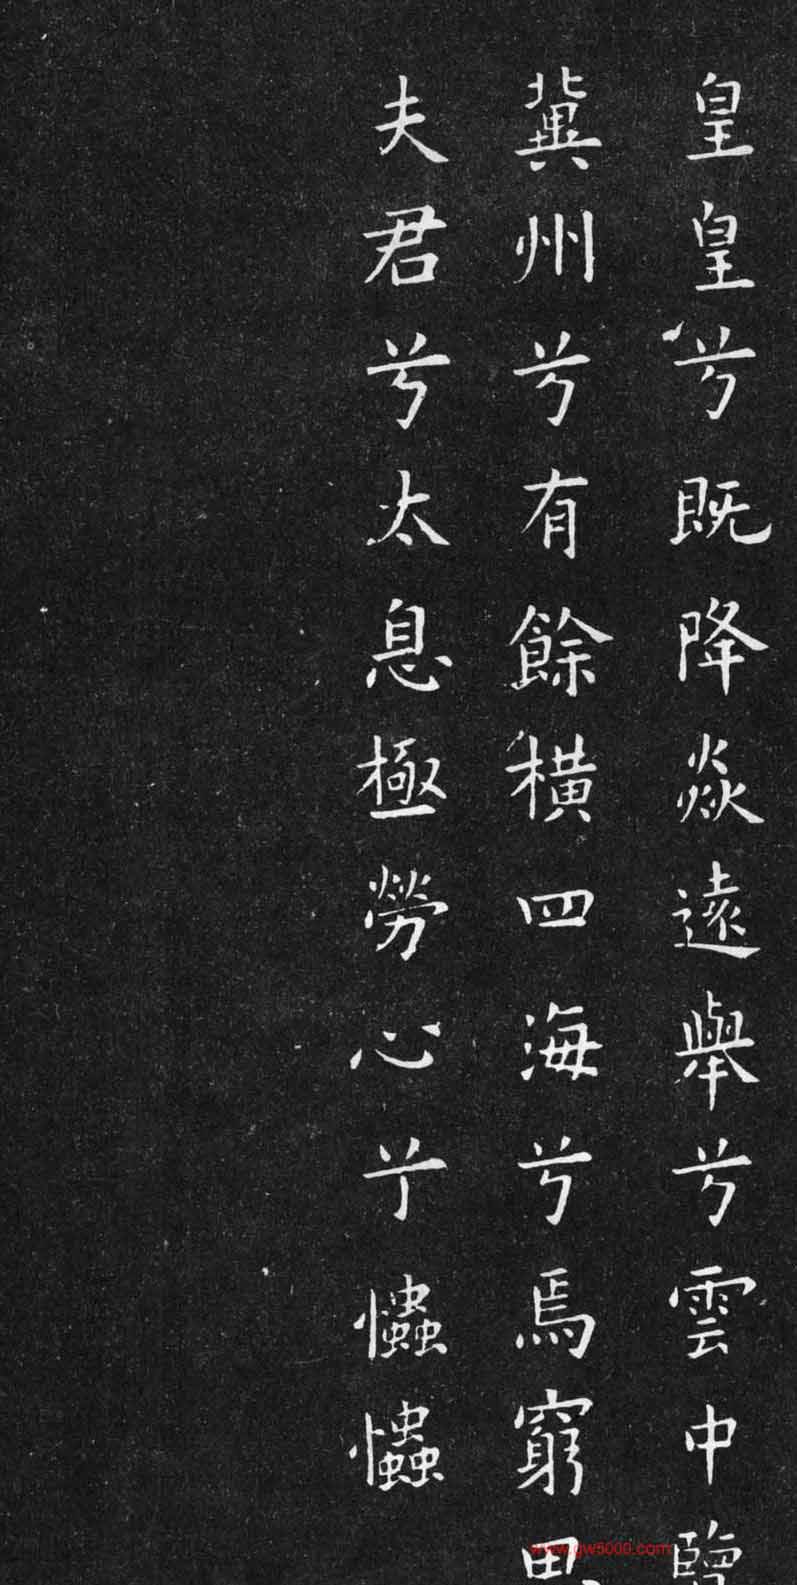 皇皇兮既降焱遠舉兮雲中
冀州兮有餘橫四海兮焉窮
夫君兮太息極勞心兮忡忡
www.gw5000.com